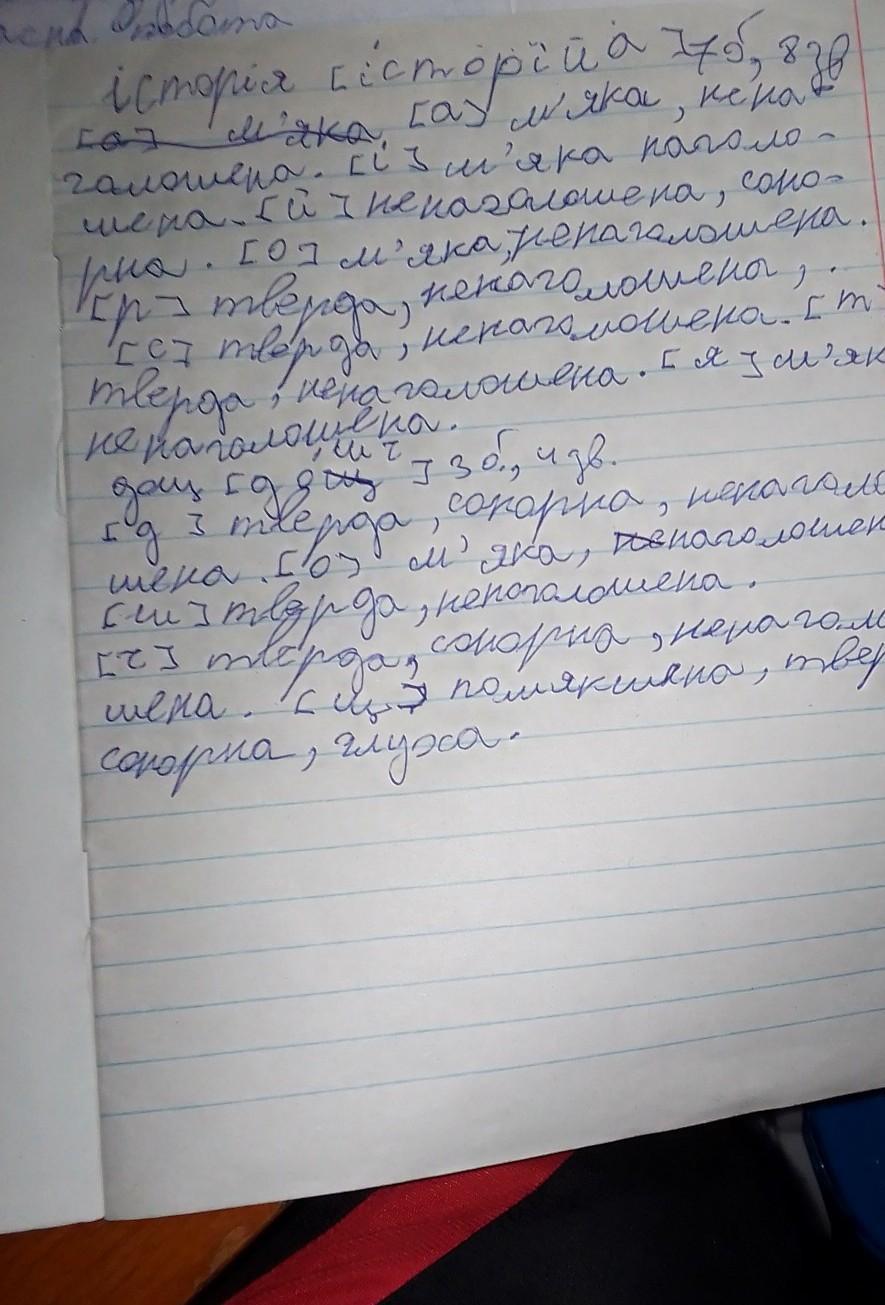 робота
історія [історійа] 7б, 8зв
[а] м'яка. [а] м'яка, нена-
галошена. [і] м'яка наголо-
шена. [й] ненагалошена, соно-
рна. [о] м'яка, ненагалошена.
[р] тверда, ненаголошена, .
[с] тверда, ненаголошена. [т]
тверда, ненаголошена. [я] м'як
ненаголошена.
шч
дощ [дощ] 3 б., 4 зв.
[д] тверда, сонорна, ненагало
шена. [о] м'яка, ненаголошен
[ш] тверда, ненаголошена.
[ч] тверда, сонорна, ненагол
шена. [щ] помякшена, твер
сонорна, глуха.